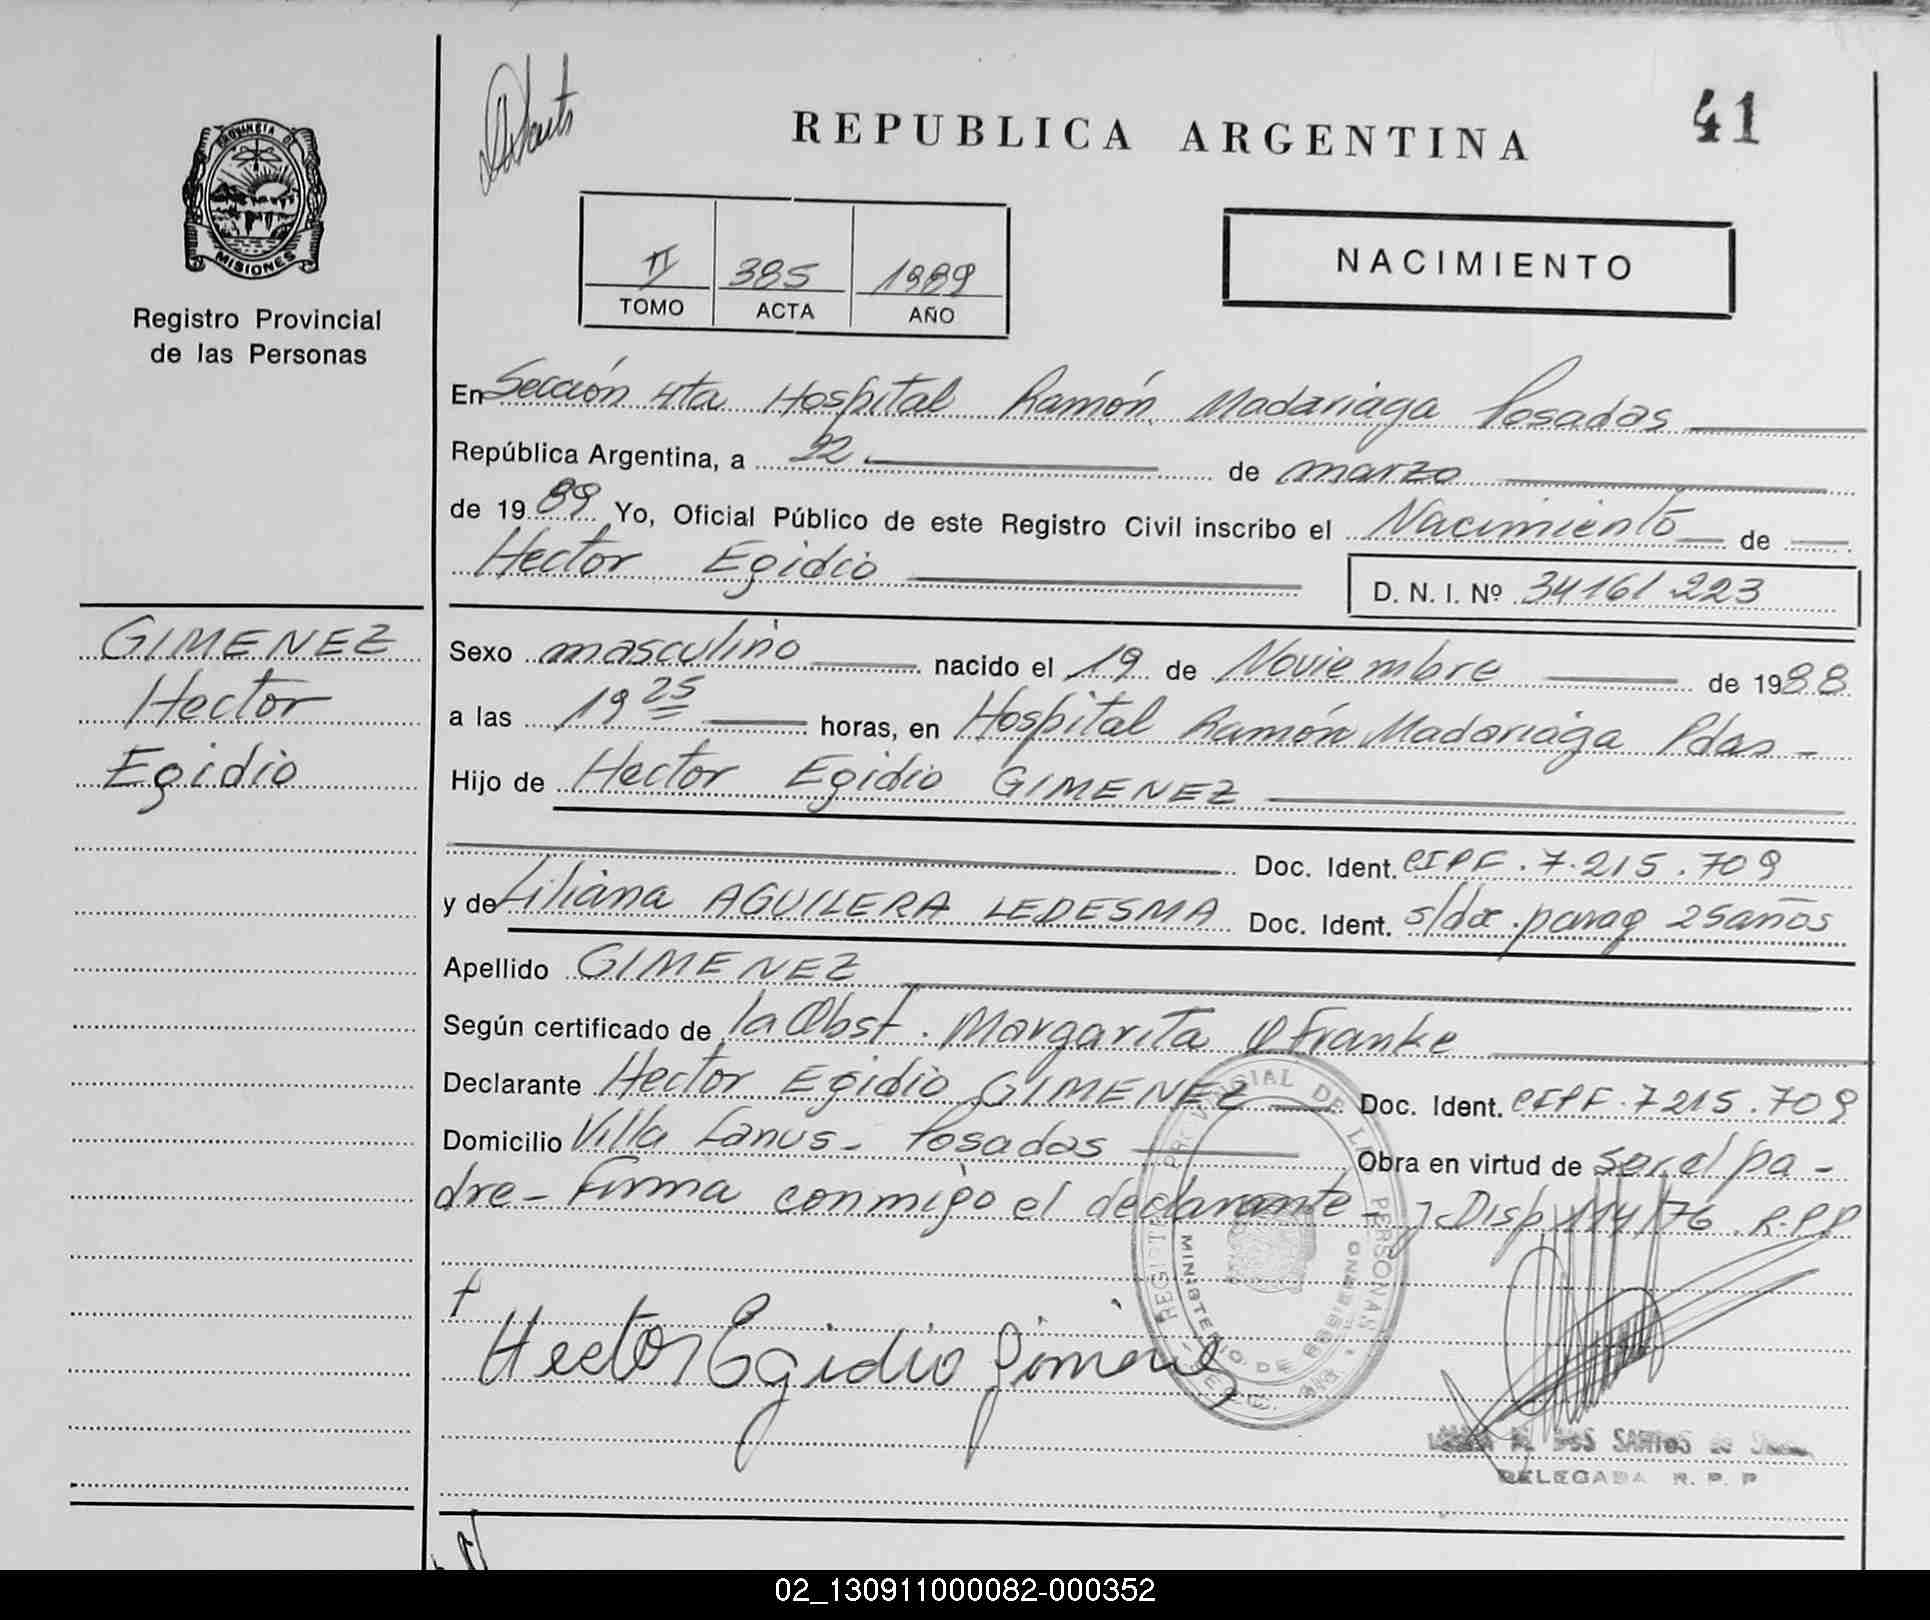 41
REPUBLICA ARGENTINA
PROVINCIA DE
MISIONES
Registro Provincial
de las Personas
II 385 1989
TOMO ACTA AÑO
NACIMIENTO
En Sección 4ta Hospital Ramón Madariaga Posadas
República Argentina, a 22 de marzo
de 1989 Yo, Oficial Público de este Registro Civil inscribo el Nacimiento de
Hector Egidio D. N. I. Nº 34161223
GIMENEZ
Hector
Egidio
Sexo masculino nacido el 19 de Noviembre de 1988
a las 19 25 horas, en Hospital Ramón Madariaga Pdas -
Hijo de Hector Egidio GIMENEZ
Doc. Ident. CIPF. 7.215.709
y de Liliana AGUILERA LEDESMA Doc. Ident. s/doc. parag 25 años
Apellido GIMENEZ
Según certificado de la Obst. Margarita Franke
Declarante Hector Egidio GIMENEZ Doc. Ident. CIPF. 7215.709
Domicilio Villa Lanus - Posadas Obra en virtud de ser el pa-
dre - Firma conmigo el declarante - Disp 114/76. R.P.P
REGISTRO PROVINCIAL DE LAS PERSONAS
MINISTERIO DE GOBIERNO
Hector Egidio Gimenez
DOS SANTOS de
DELEGADA R. P. P
02_130911000082-000352